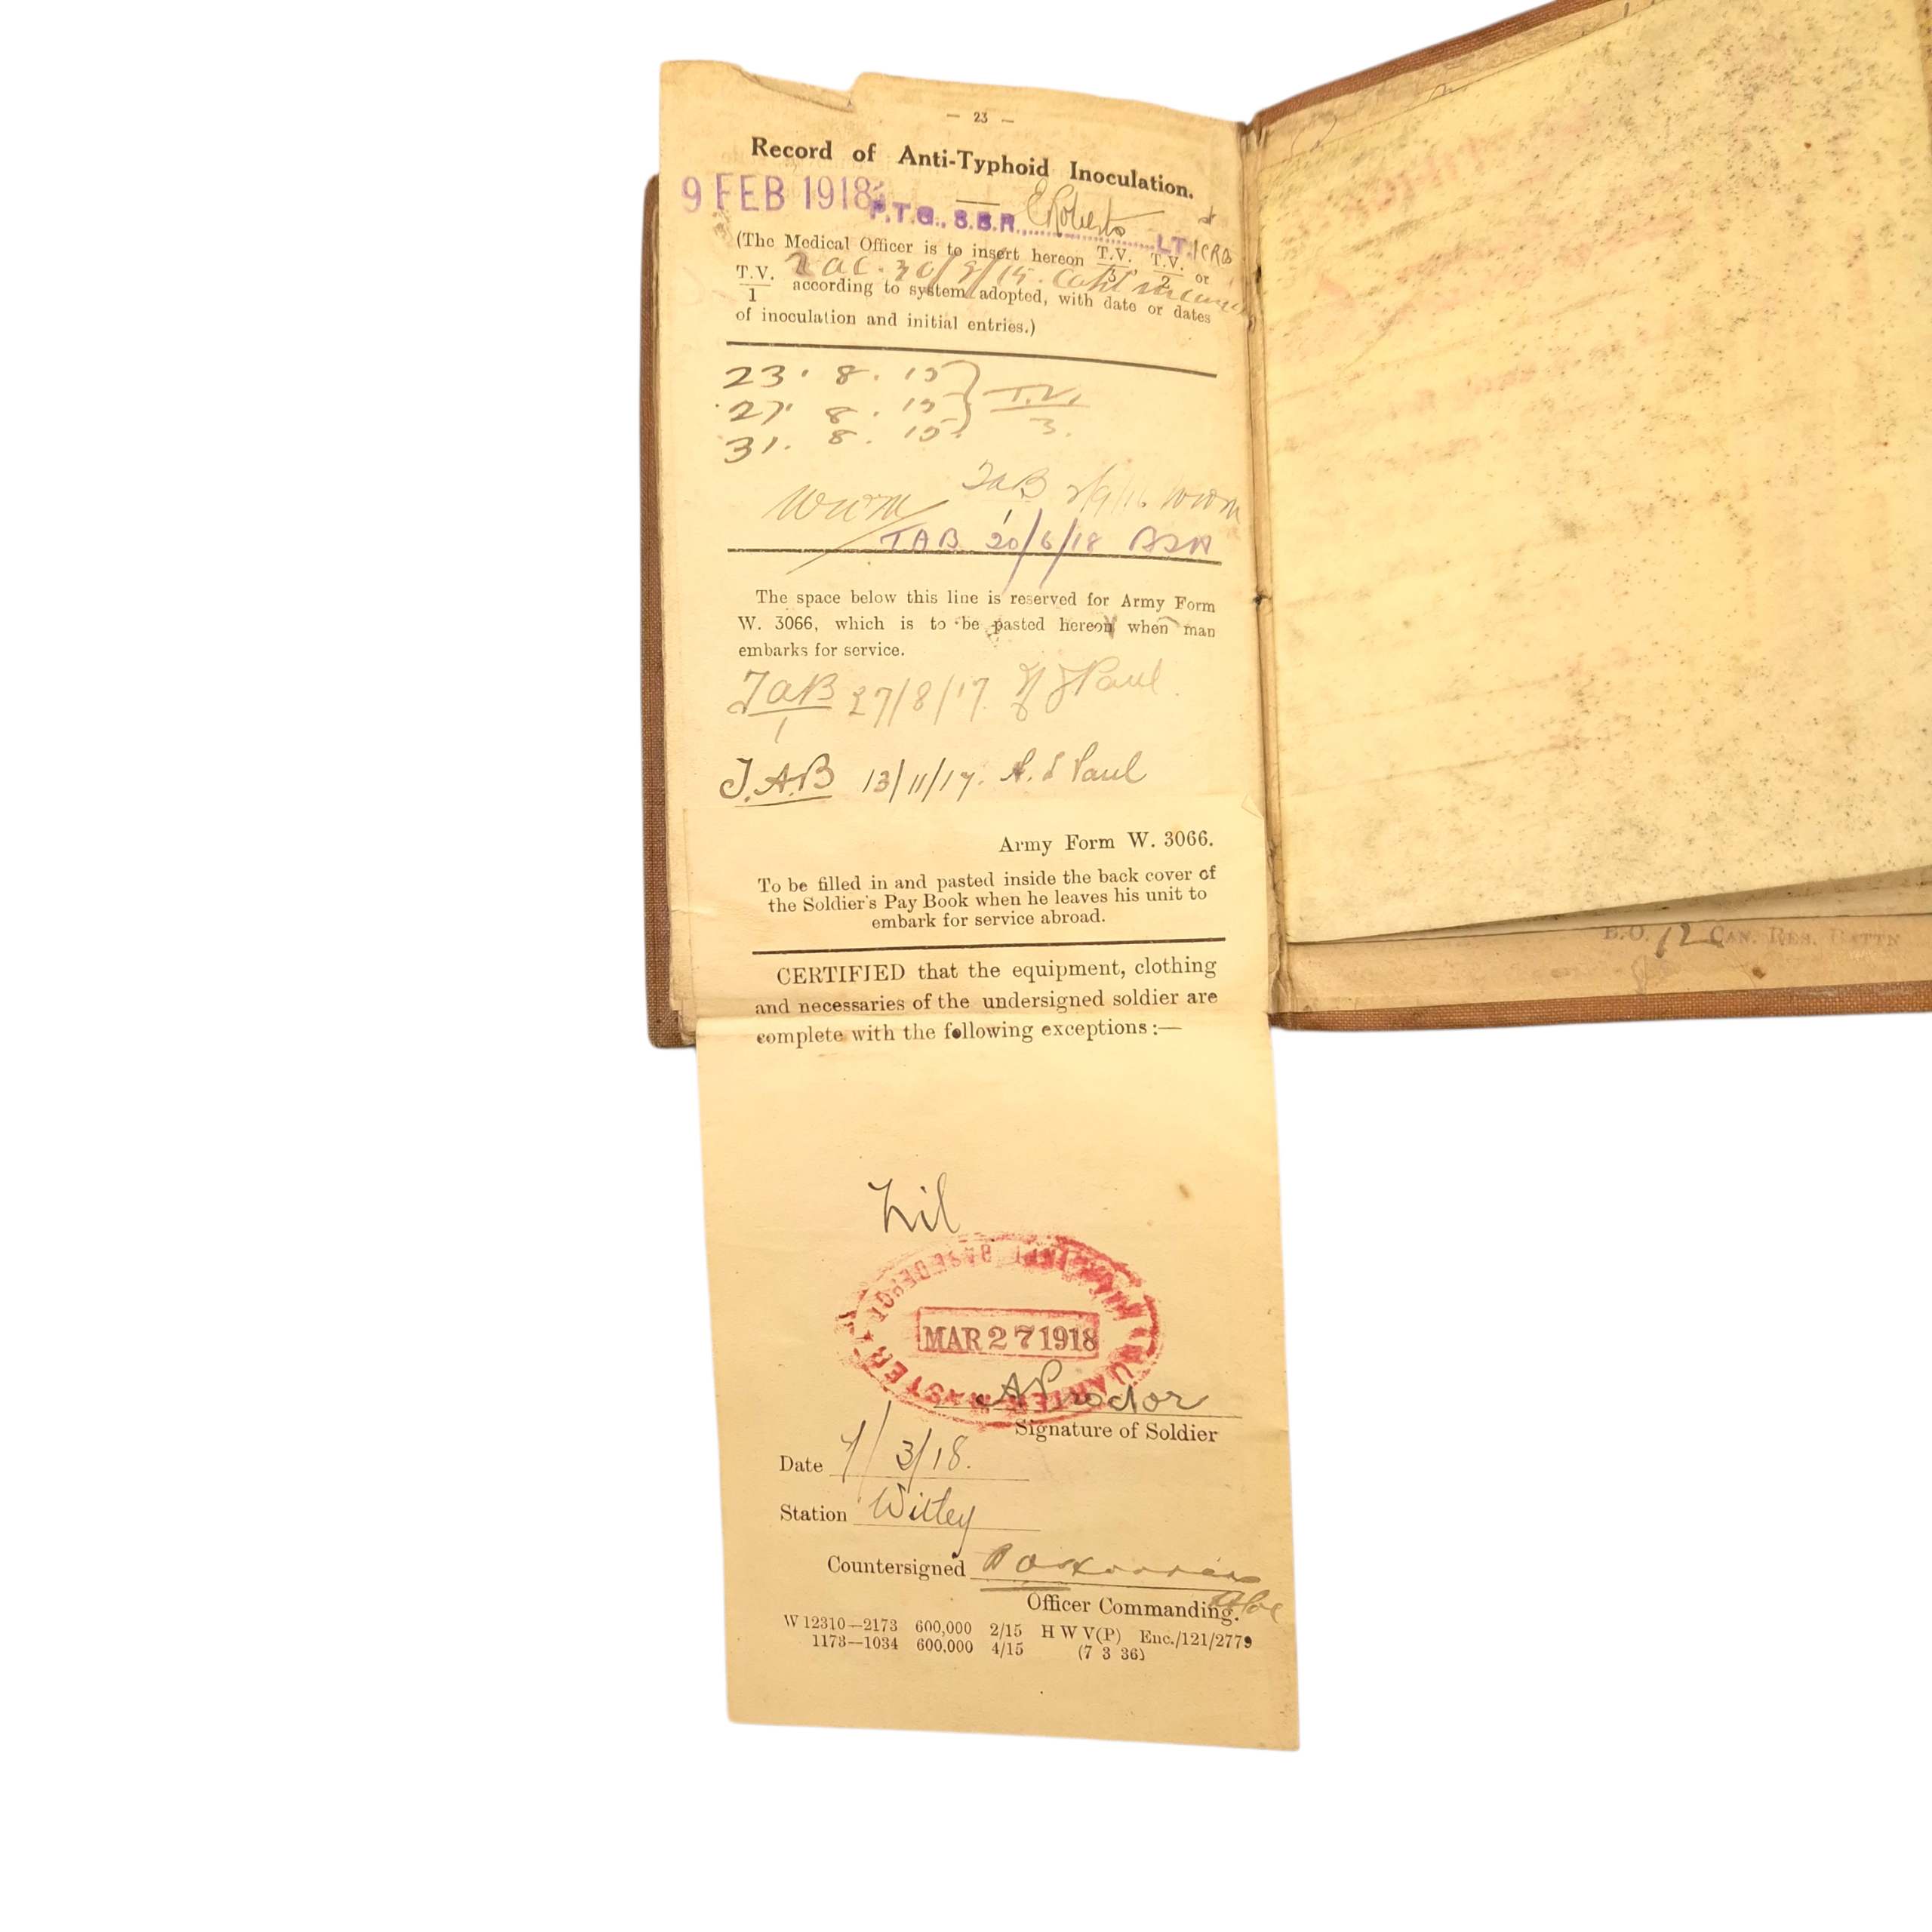 — 23 —
Record of Anti-Typhoid Inoculation.
9 FEB 1918
P.T.G., S.B.R., E Roberts LT.
(The Medical Officer is to insert hereon T.V./3, T.V./2 or
T.V./1 according to system adopted, with date or dates
Vac. 30/9/15.
of inoculation and initial entries.)
23. 8. 15
27. 8. 15 } T.V./3.
31. 8. 15
TAB 2/9/16 WWM
WWM
TAB 20/6/18
The space below this line is reserved for Army Form
W. 3066, which is to be pasted hereon when man
embarks for service.
TAB/1 27/8/17 Paul
T.A.B 13/11/17. Paul
Army Form W. 3066.
To be filled in and pasted inside the back cover of
the Soldier's Pay Book when he leaves his unit to
embark for service abroad.
CERTIFIED that the equipment, clothing
and necessaries of the undersigned soldier are
complete with the following exceptions :—
Nil
BASE DEPOT
MAR 27 1918
QUARTERMASTER
A Proctor
Signature of Soldier
Date 7/3/18.
Station Witley
Countersigned
Officer Commanding.
W 12310—2173 600,000 2/15 H W V(P) Enc./121/2779
1173—1034 600,000 4/15 (7 3 36)
E.O. 12 CAN. RES. BATTN